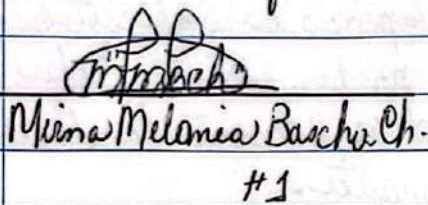 Mirna Melania Bascha Ch.
#1